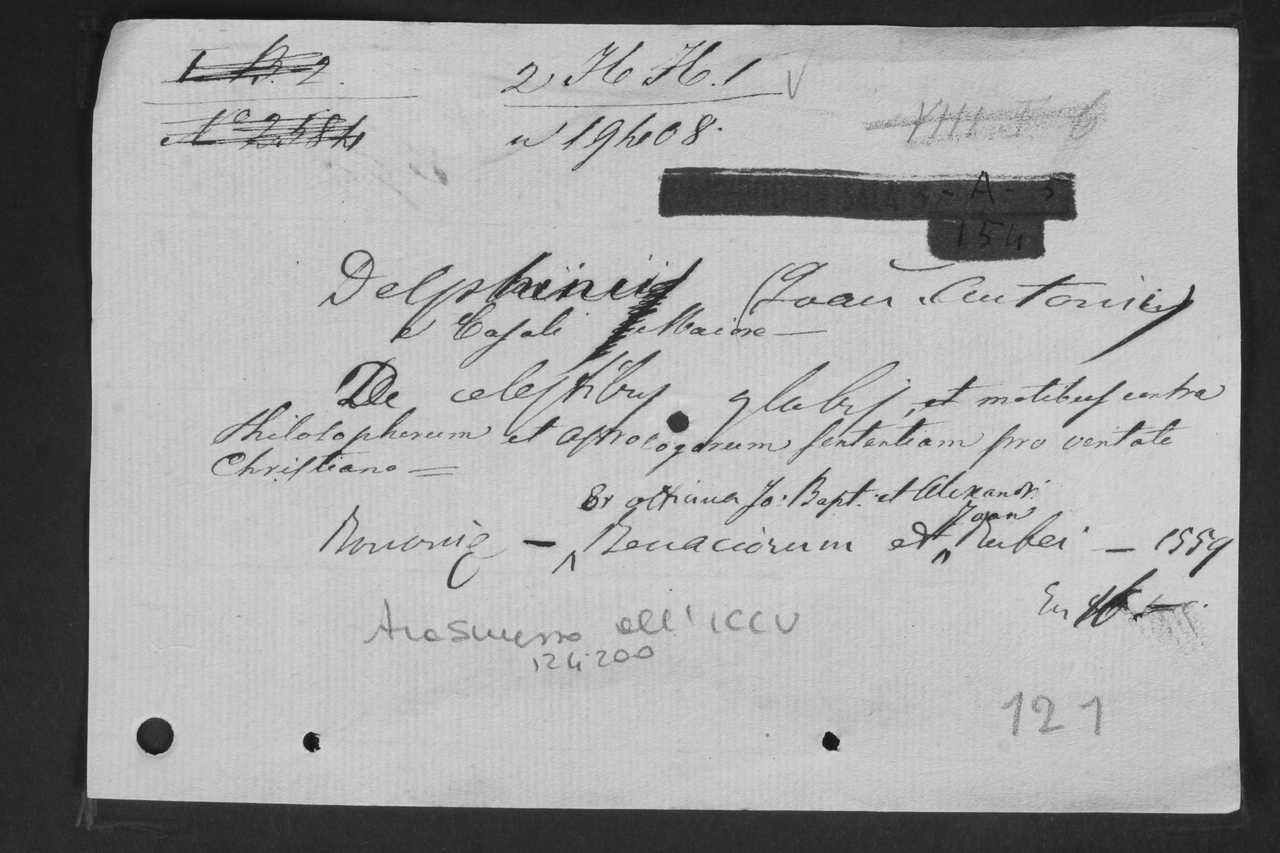 1 B. 2. 2 H H. 1
N° 2584 n 19408.
VIII
SALA - A -
154
Delphinus (Joan. Antonius)
a Casali Maiore —
De celestibus globis, et motibus contra
Philosophorum et astrologorum sententiam pro veritate
Christiana =
Ex officina Jo: Bapt. et Alexandr:
Joan
Bononię — Benaciorum et Rubei — 1559
In
Trasmesso all'ICCU
12.4.200
121